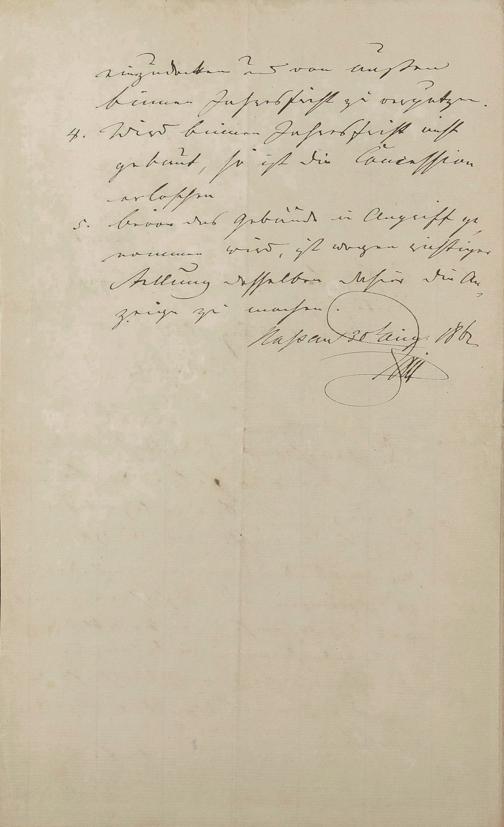 einzudecken und von außen
binnen Jahresfrist zu verputzen.
4. Wird binnen Jahresfrist nicht
gebaut, so ist die Concession
erloschen
5. bevor das Gebäude in Angriff ge
nommen wird, ist wegen richtiger
Stellung desselben dahier die An-
zeige zu machen.
Nassau 30 Aug. 1862